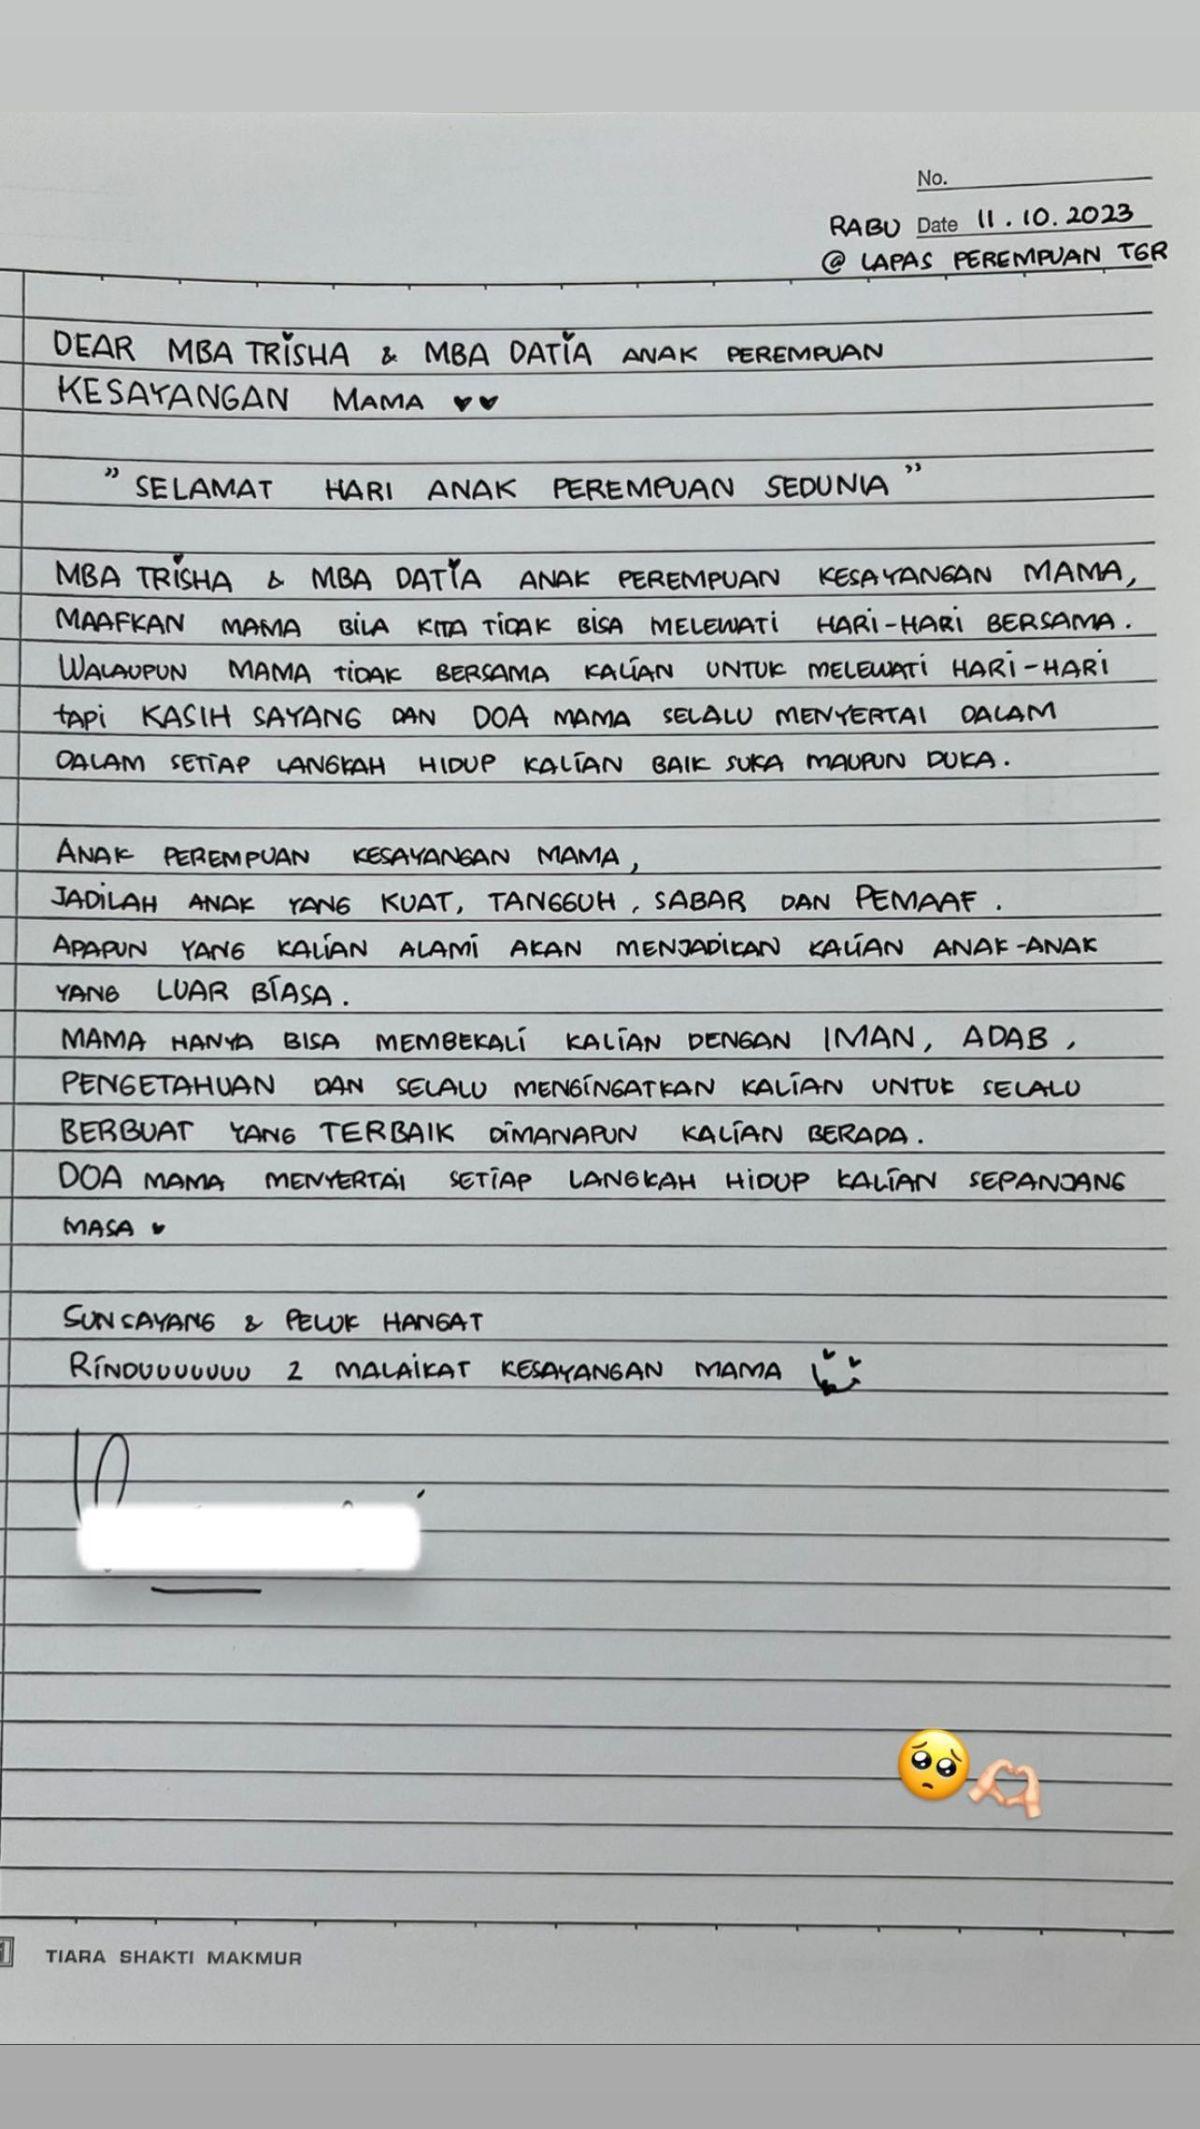 No.
RABU Date 11.10.2023
@ LAPAS PEREMPUAN TGR
DEAR MBA TRISHA & MBA DATIA ANAK PEREMPUAN
KESAYANGAN MAMA ♥♥
" SELAMAT HARI ANAK PEREMPUAN SEDUNIA "
MBA TRISHA & MBA DATIA ANAK PEREMPUAN KESAYANGAN MAMA,
MAAFKAN MAMA BILA KITA TIDAK BISA MELEWATI HARI-HARI BERSAMA.
WALAUPUN MAMA TIDAK BERSAMA KALIAN UNTUK MELEWATI HARI-HARI
tAPI KASIH SAYANG DAN DOA MAMA SELALU MENYERTAI DALAM
DALAM SETIAP LANGKAH HIDUP KALIAN BAIK SUKA MAUPUN DUKA.
ANAK PEREMPUAN KESAYANGAN MAMA,
JADILAH ANAK YANG KUAT, TANGGUH, SABAR DAN PEMAAF.
APAPUN YANG KALIAN ALAMI AKAN MENJADIKAN KALIAN ANAK-ANAK
YANG LUAR BIASA.
MAMA HANYA BISA MEMBEKALI KALIAN DENGAN IMAN, ADAB,
PENGETAHUAN DAN SELALU MENGINGATKAN KALIAN UNTUK SELALU
BERBUAT YANG TERBAIK DIMANAPUN KALIAN BERADA.
DOA MAMA MENYERTAI SETIAP LANGKAH HIDUP KALIAN SEPANJANG
MASA ♥
SUN SAYANG & PELUK HANGAT
RINDUUUUUUU 2 MALAIKAT KESAYANGAN MAMA
TIARA SHAKTI MAKMUR